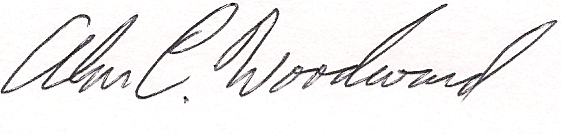 Alan C. Woodward